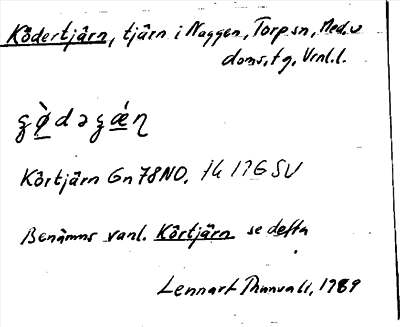 Ködertjärn, tjärn i Naggen, Torp sn, Med.v
doms. tg, Vrnl. l.
Körtjärn Gn 78 NO. 1k 17G SV
Benämns vanl. Körtjärn se detta
Lennart Thunvall, 1989